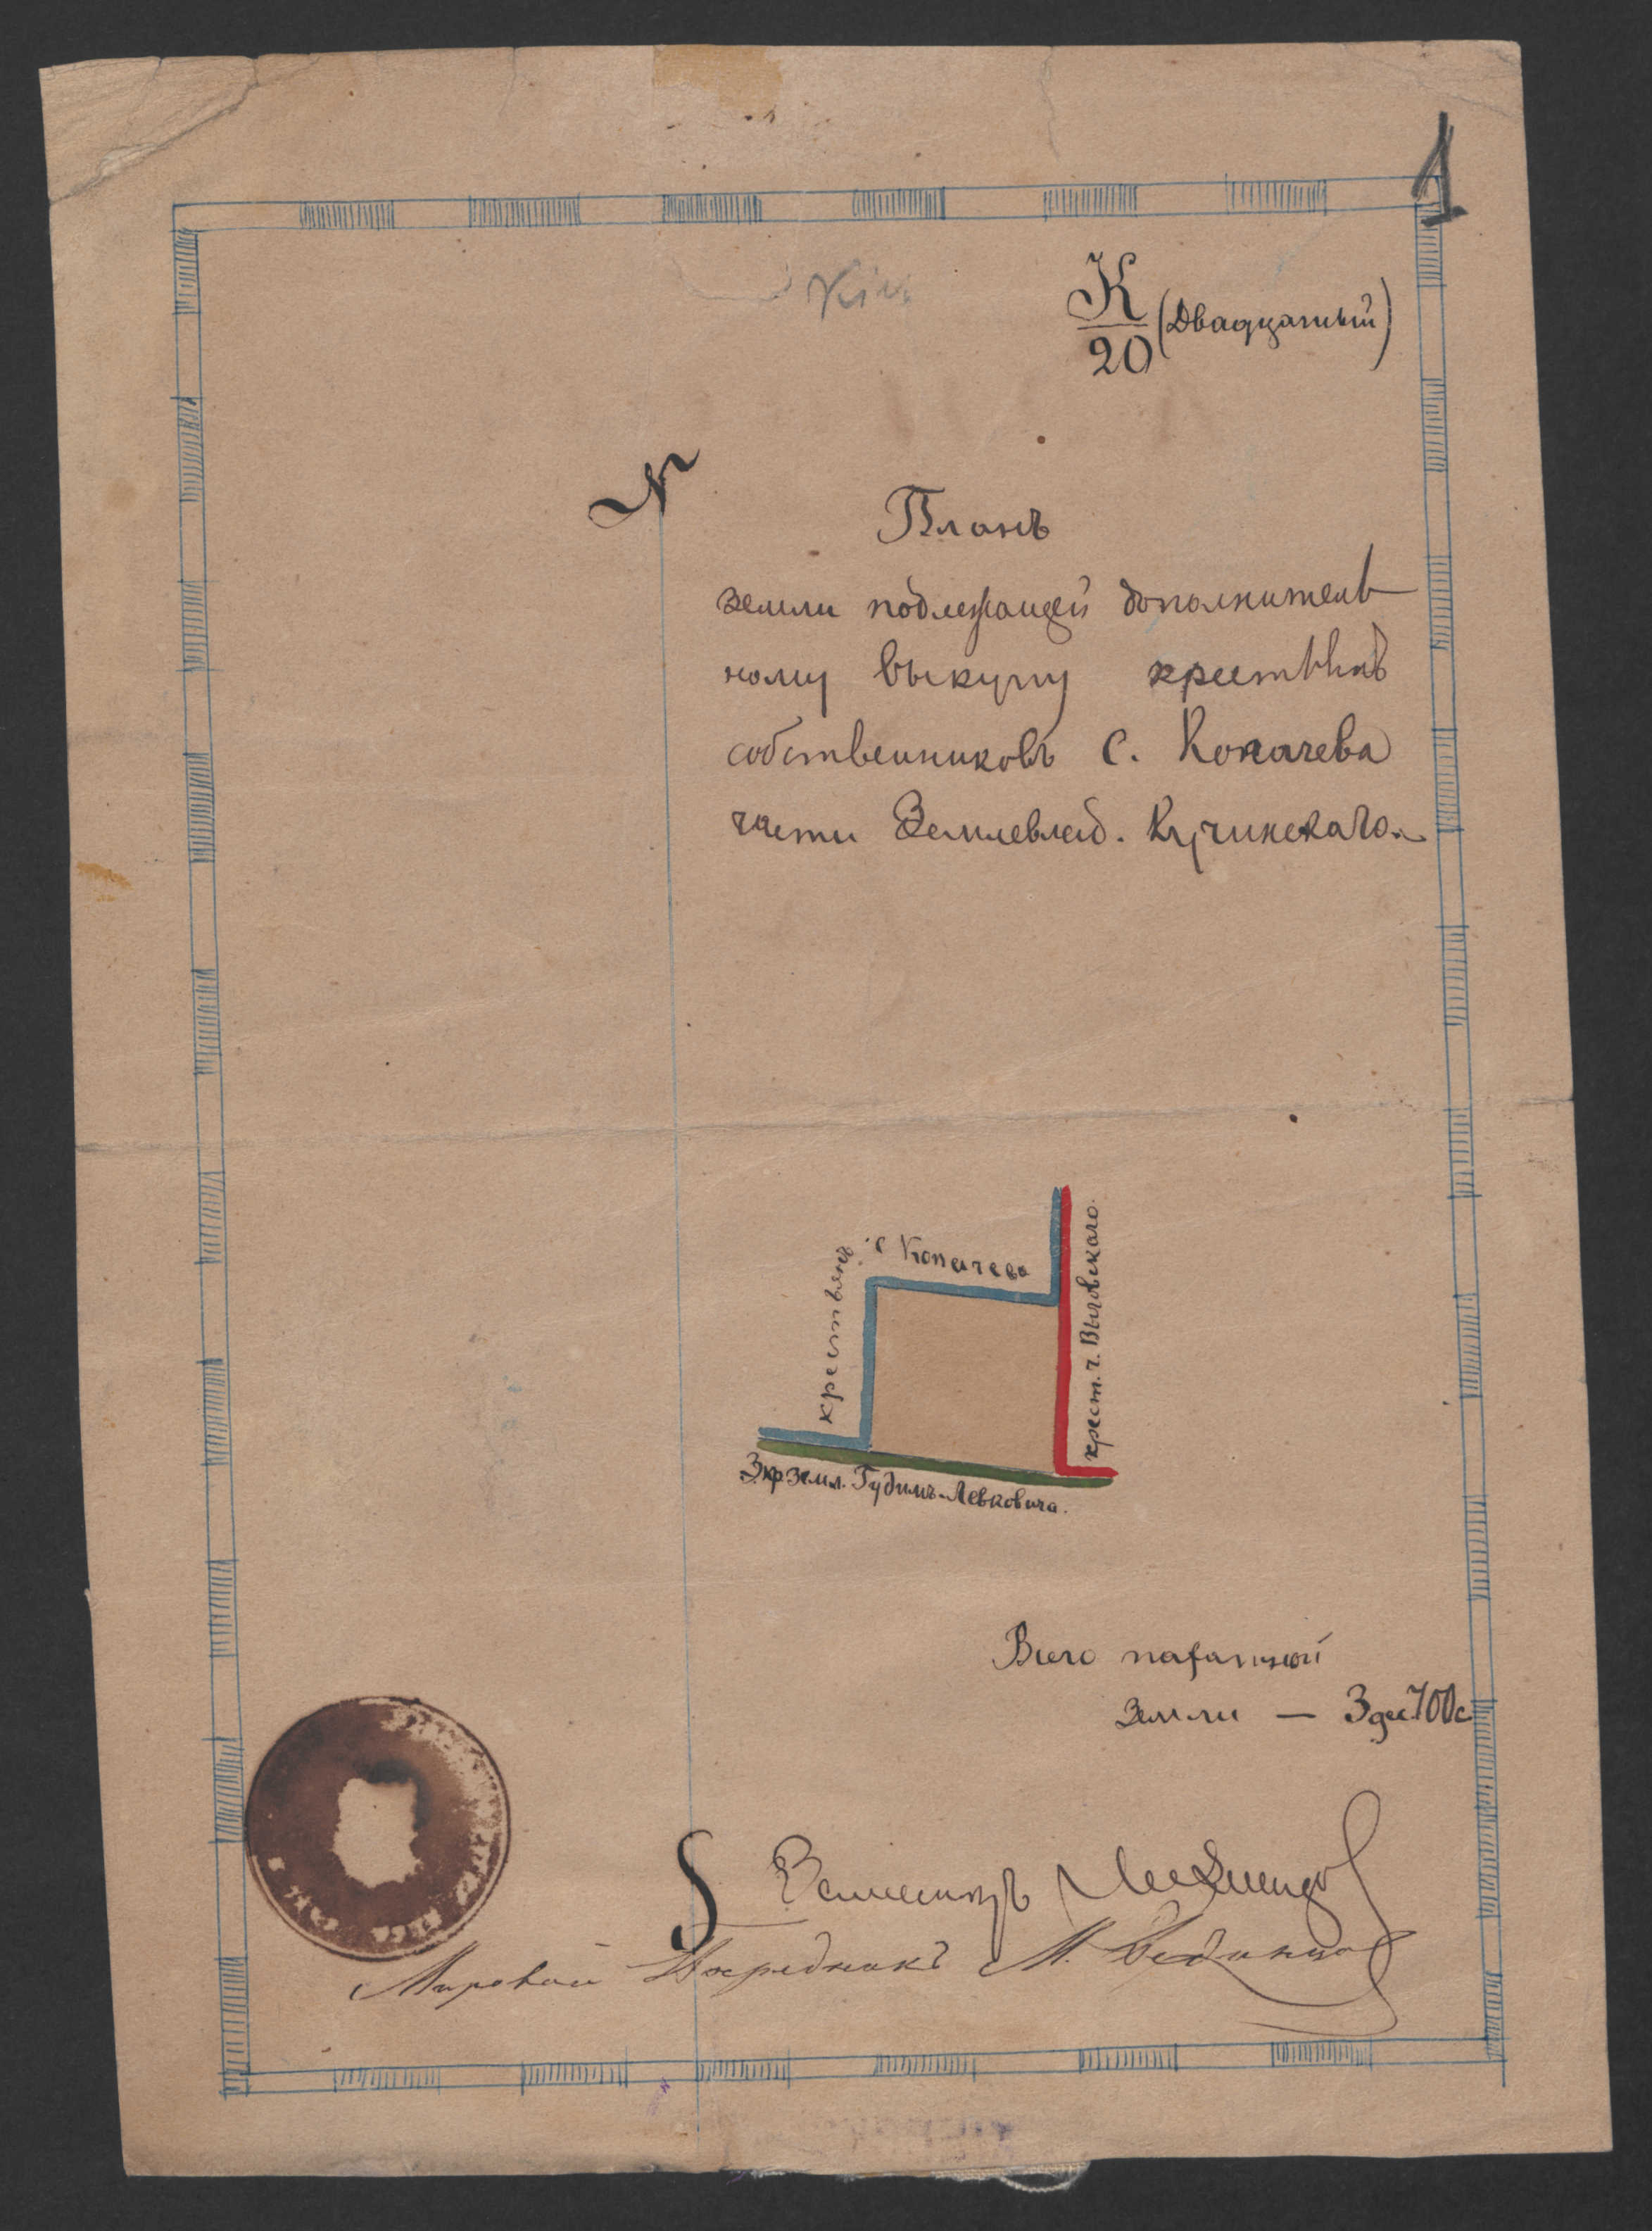 1
К
20
(Двадцатый)
N
Планъ
земли подлежащей дополнитель
ному выкупу крестьянъ
собственниковъ с. Копачева
части Землевлад. Кучинскаго.
крестьянъ
с Копачева
крест. ч. Выговскаго.
Экр земл. Гудимъ-Левковича.
Всего пахатной
земли — 3 дес 700 с
S
Землемѣръ
Мировой Посредникъ М.